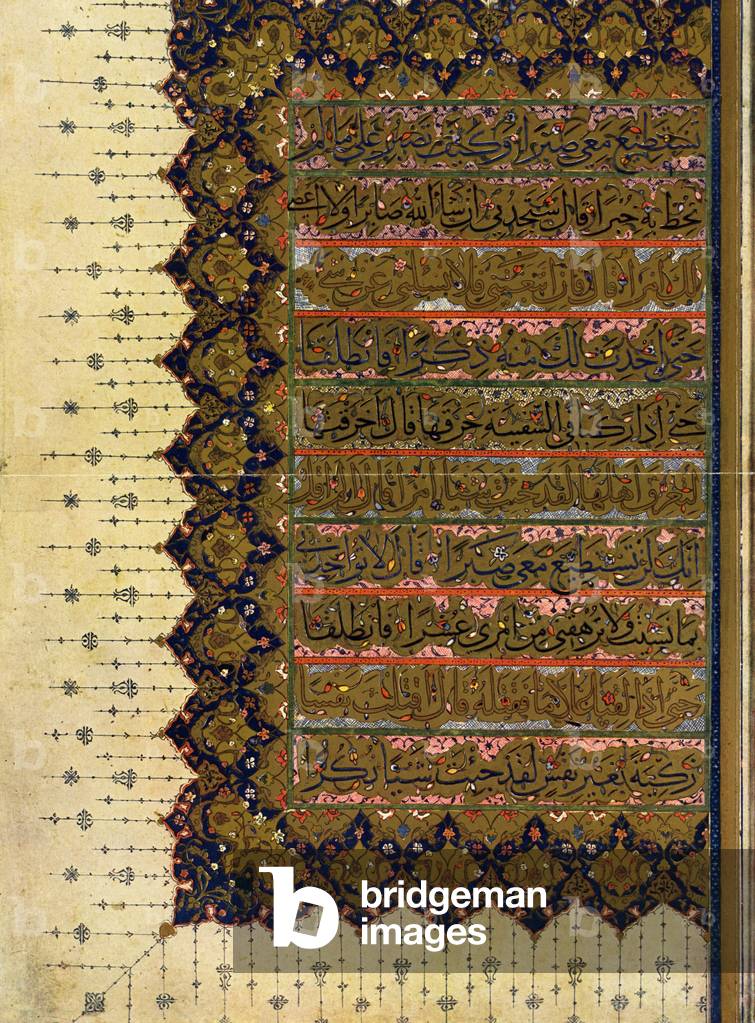 تستطيع معي صبرا وكيف تصبر على ما لم
تحط به خبرا قال ستجدني إن شاء الله صابرا ولا أعصي
لك أمرا قال فإن اتبعتني فلا تسئلني عن شيء
حتى أحدث لك منه ذكرا فانطلقا
حتى إذا ركبا في السفينة خرقها قال أخرقتها
لتغرق أهلها لقد جئت شيئا إمرا قال ألم أقل
إنك لن تستطيع معي صبرا قال لا تؤاخذني
بما نسيت ولا ترهقني من أمري عسرا فانطلقا
حتى إذا لقيا غلاما فقتله قال أقتلت نفسا
زكية بغير نفس لقد جئت شيئا نكرا
bridgeman
images